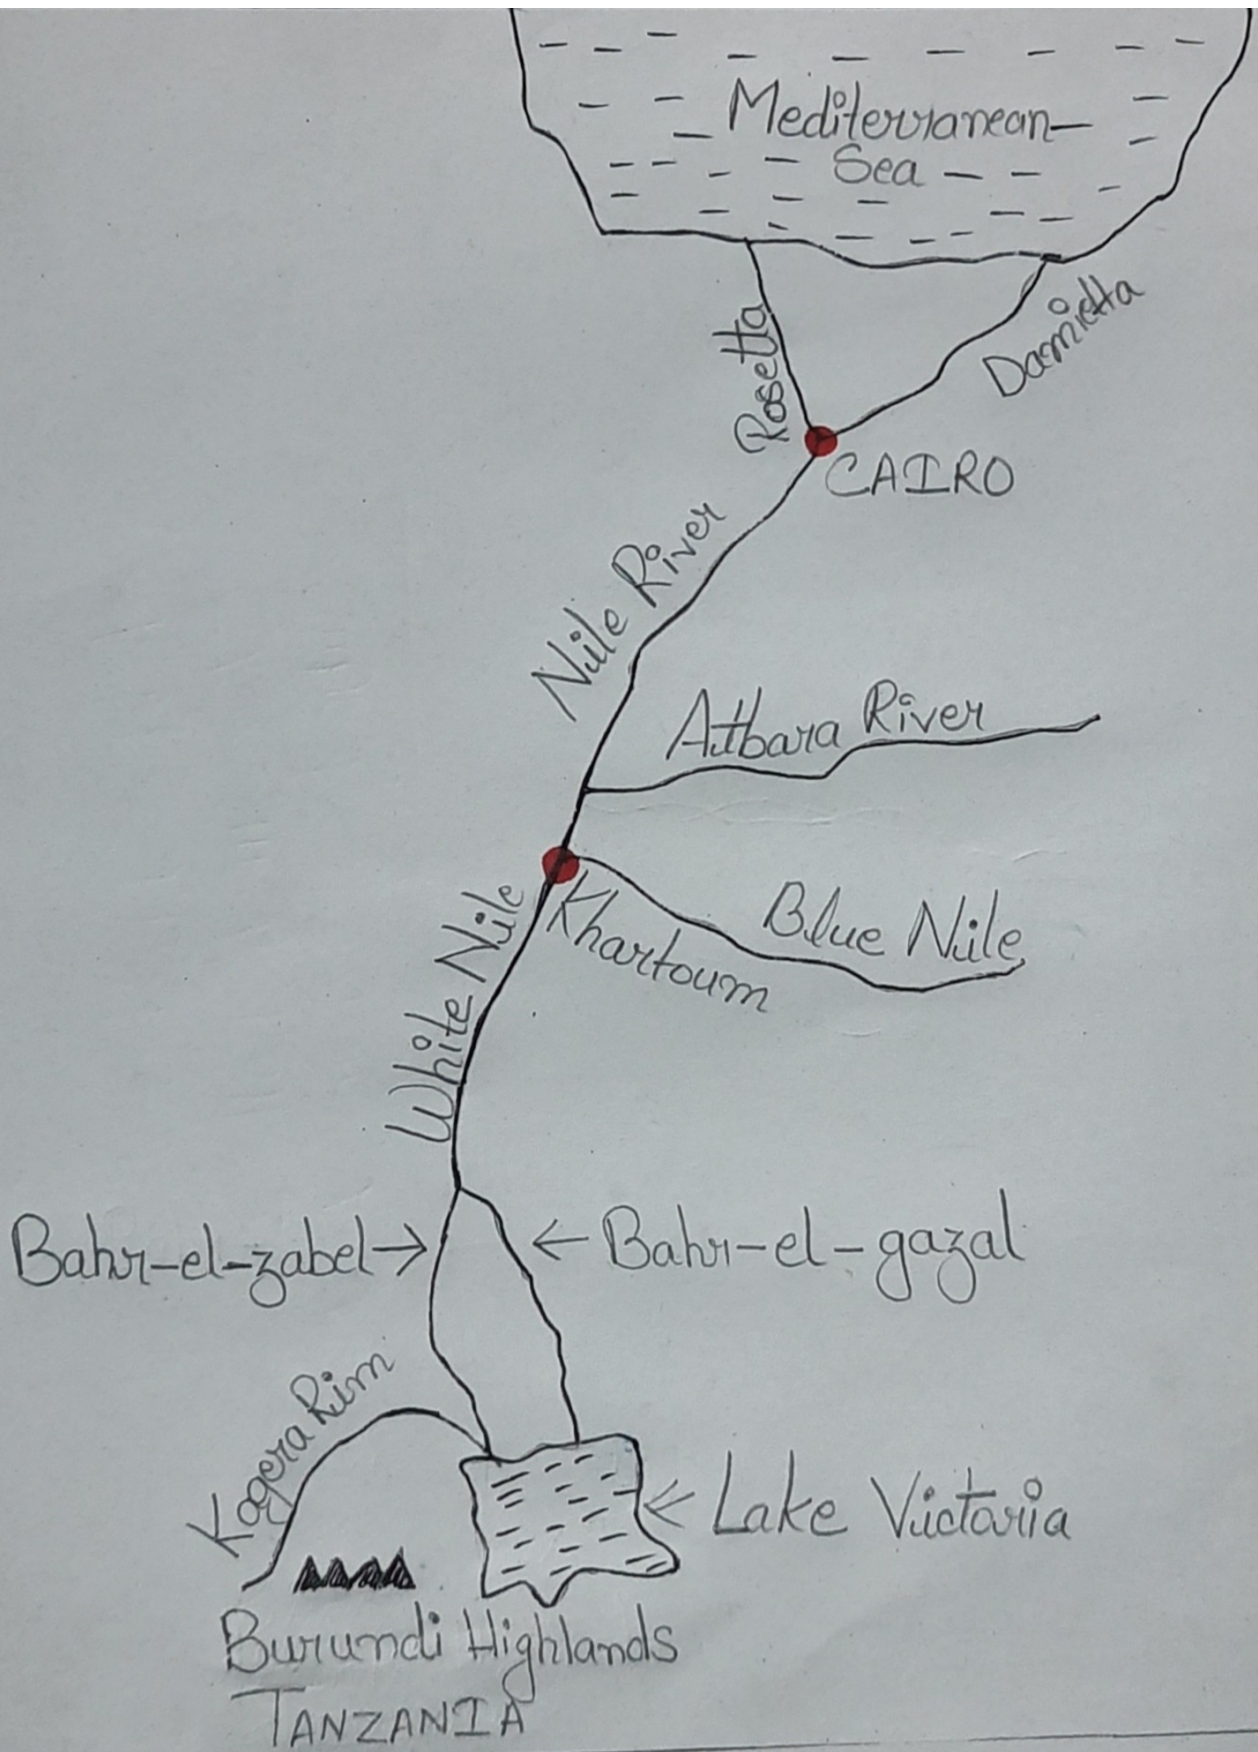 Mediterranean
Sea
Rosetta
Damietta
CAIRO
Nile River
Atbara River
Khartoum
Blue Nile
White Nile
Bahr-el-zabel
Bahr-el-gazal
Kagera Rim
Lake Victoria
Burundi Highlands
TANZANIA